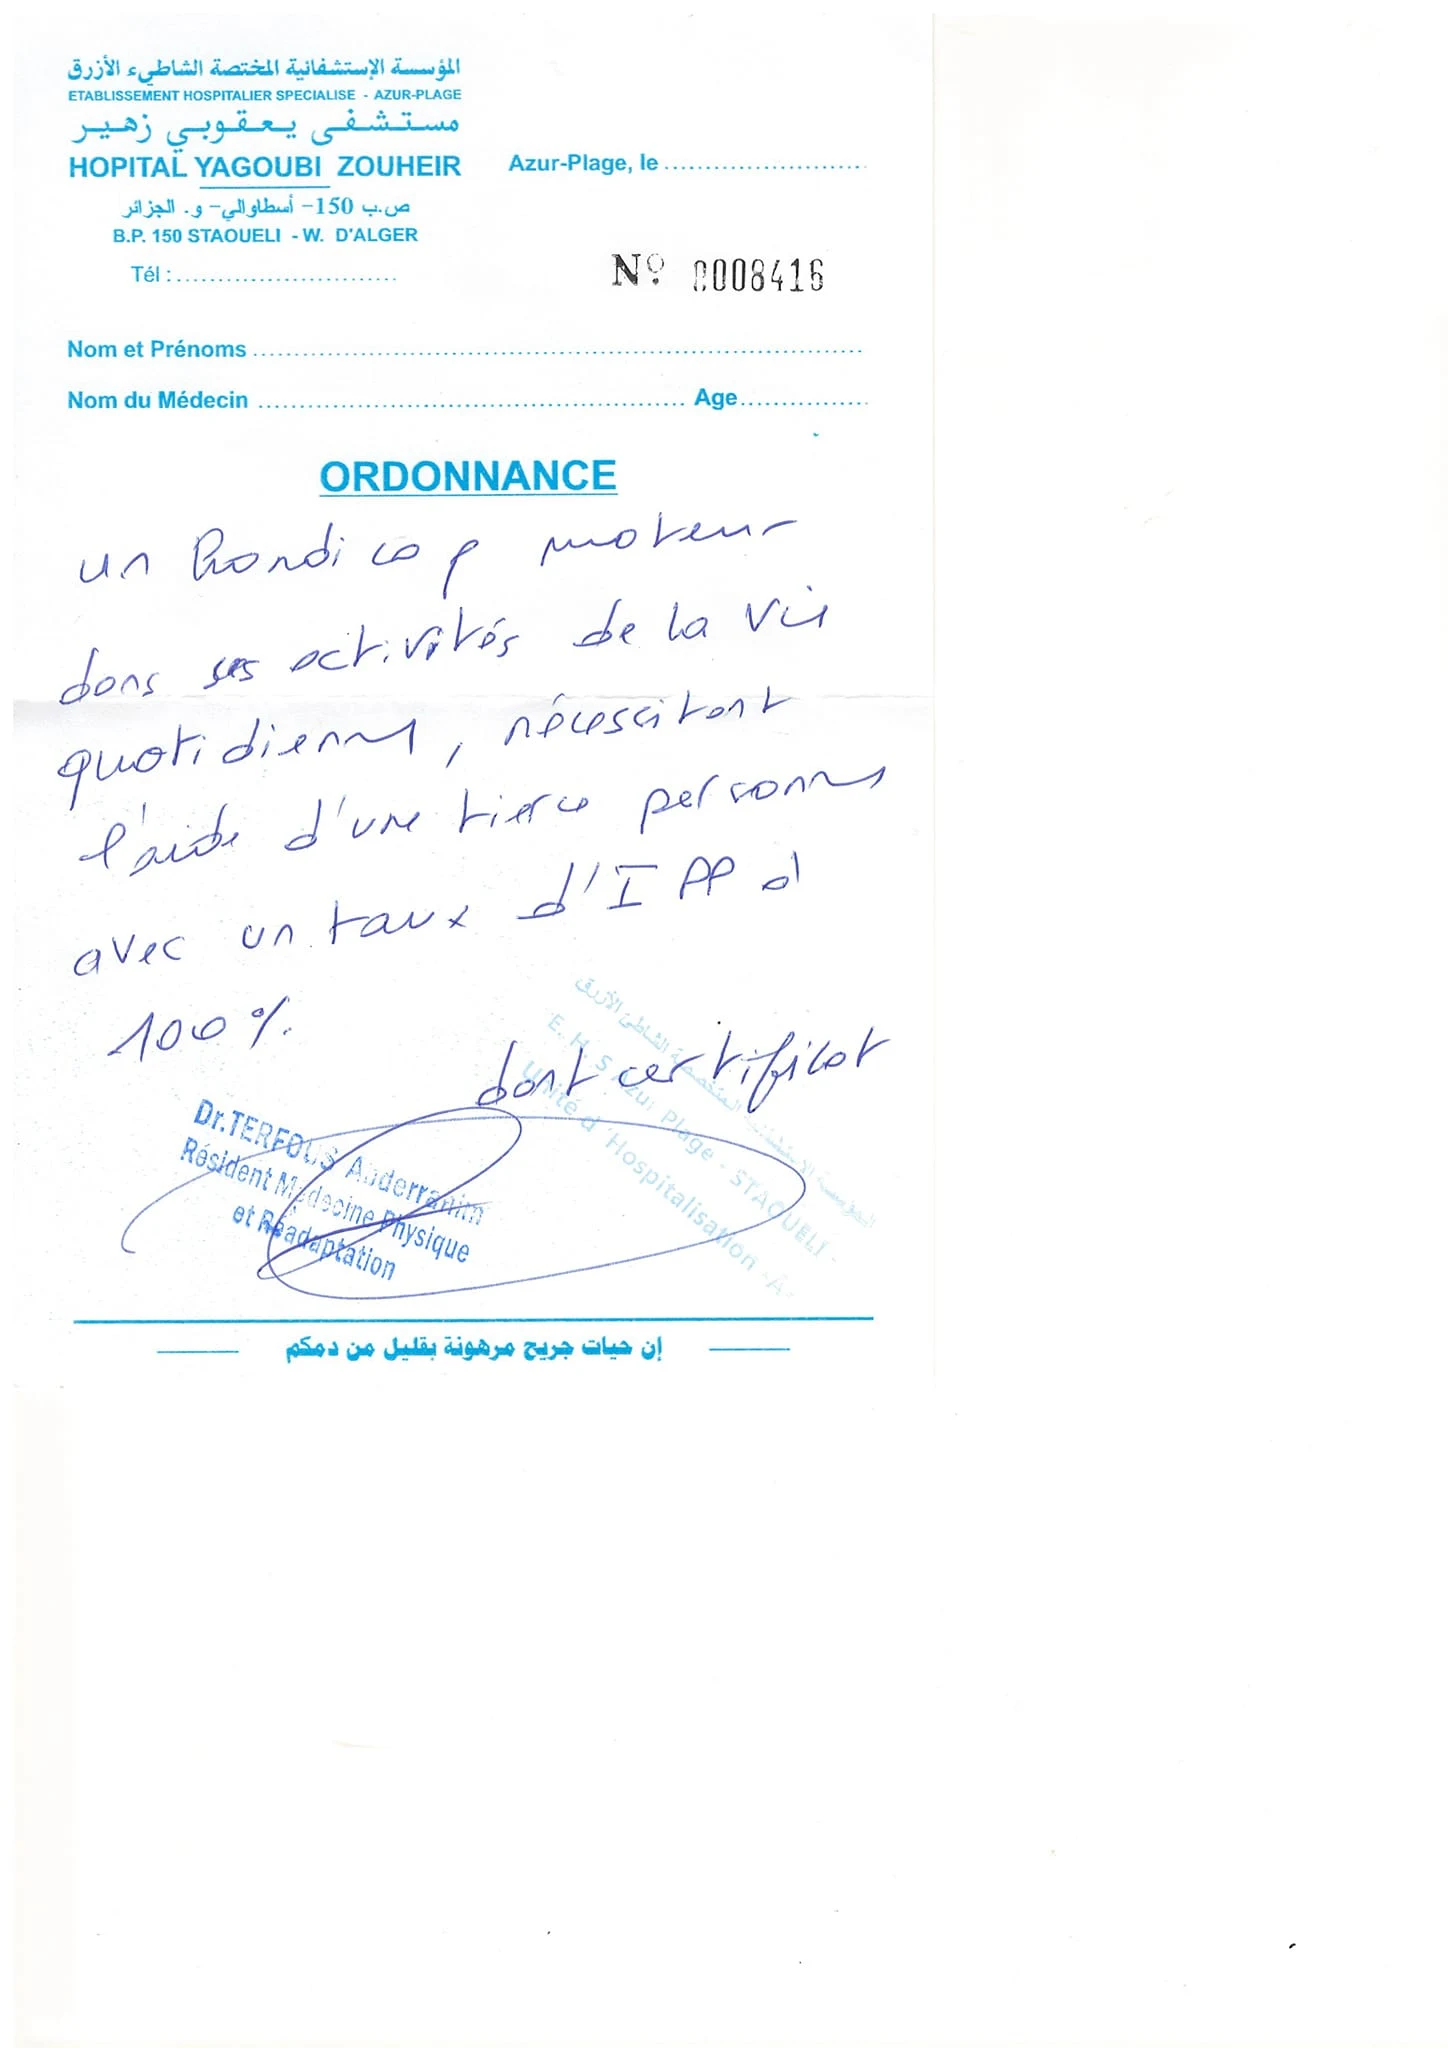 المؤسسة الإستشفائية المختصة الشاطيء الأزرق
ETABLISSEMENT HOSPITALIER SPECIALISE - AZUR-PLAGE
مستشفى يعقوبي زهير
HOPITAL YAGOUBI ZOUHEIR
Azur-Plage, le ..............................
ص.ب 150- أسطاوالي- و. الجزائر
B.P. 150 STAOUELI - W. D'ALGER
Tél :................................
Nº 0008416
Nom et Prénoms ..............................
Nom du Médecin .............................. Age..................
ORDONNANCE
un handicap moteur
dans ses activités de la vie
quotidienne, nécessitant
l'aide d'une tierce personne
avec un taux d'IPP à
100%.
dont certificat
المؤسسة الإستشفائية المتخصصة الشاطئ الأزرق
E. H. S Azur Plage - STAOUELI -
Unité d'Hospitalisation -A-
Dr.TERFOUS Abderrahim
Résident Médecine Physique
et Réadaptation
إن حيات جريح مرهونة بقليل من دمكم